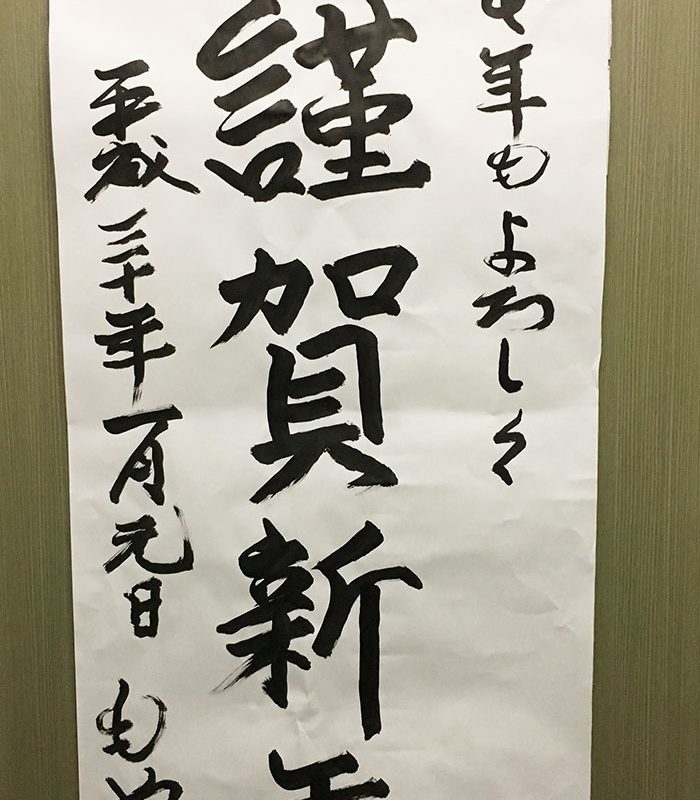 年もよろしく
謹賀新年
平成三十年一月元日 も